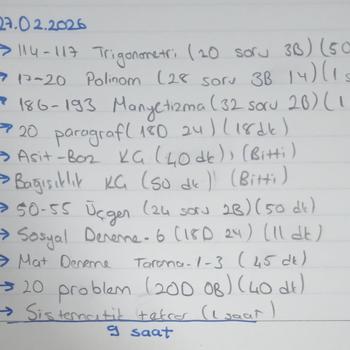 27.02.2026
→ 114-117 Trigonometri (20 soru 3B) (50
→ 17-20 Polinom (28 soru 3B 14) (1 s
→ 186-193 Manyetizma (32 soru 2B) (1
→ 20 paragraf (18D 24) (18dk)
→ Asit-Baz KG (40 dk), (Bitti)
→ Bağışıklık KG (50 dk) (Bitti)
→ 50-55 Üçgen (24 soru 2B) (50 dk)
→ Sosyal Deneme-6 (18D 24) (11 dk)
→ Mat Deneme Tarama-1-3 (45 dk)
→ 20 problem (20D 0B) (40 dk)
→ Sistematik tekrar (1 saat)
9 saat